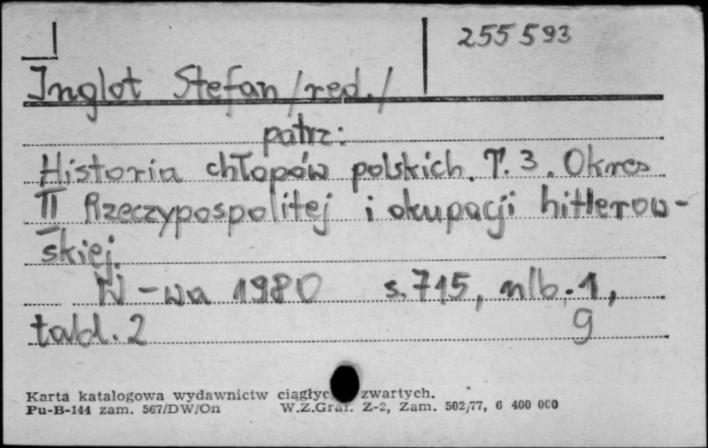 255 593
Inglot Stefan /red./
patrz:
Historia chłopów polskich. T. 3. Okres
II Rzeczypospolitej i okupacji hitlerow-
skiej.
W-wa 1980 s. 715, nlb. 1,
tabl. 2 9
Karta katalogowa wydawnictw ciągłyc zwartych.
Pu-B-144 zam. 567/DW/On W.Z.Graf. Z-2, Zam. 502/77, 6 400 000